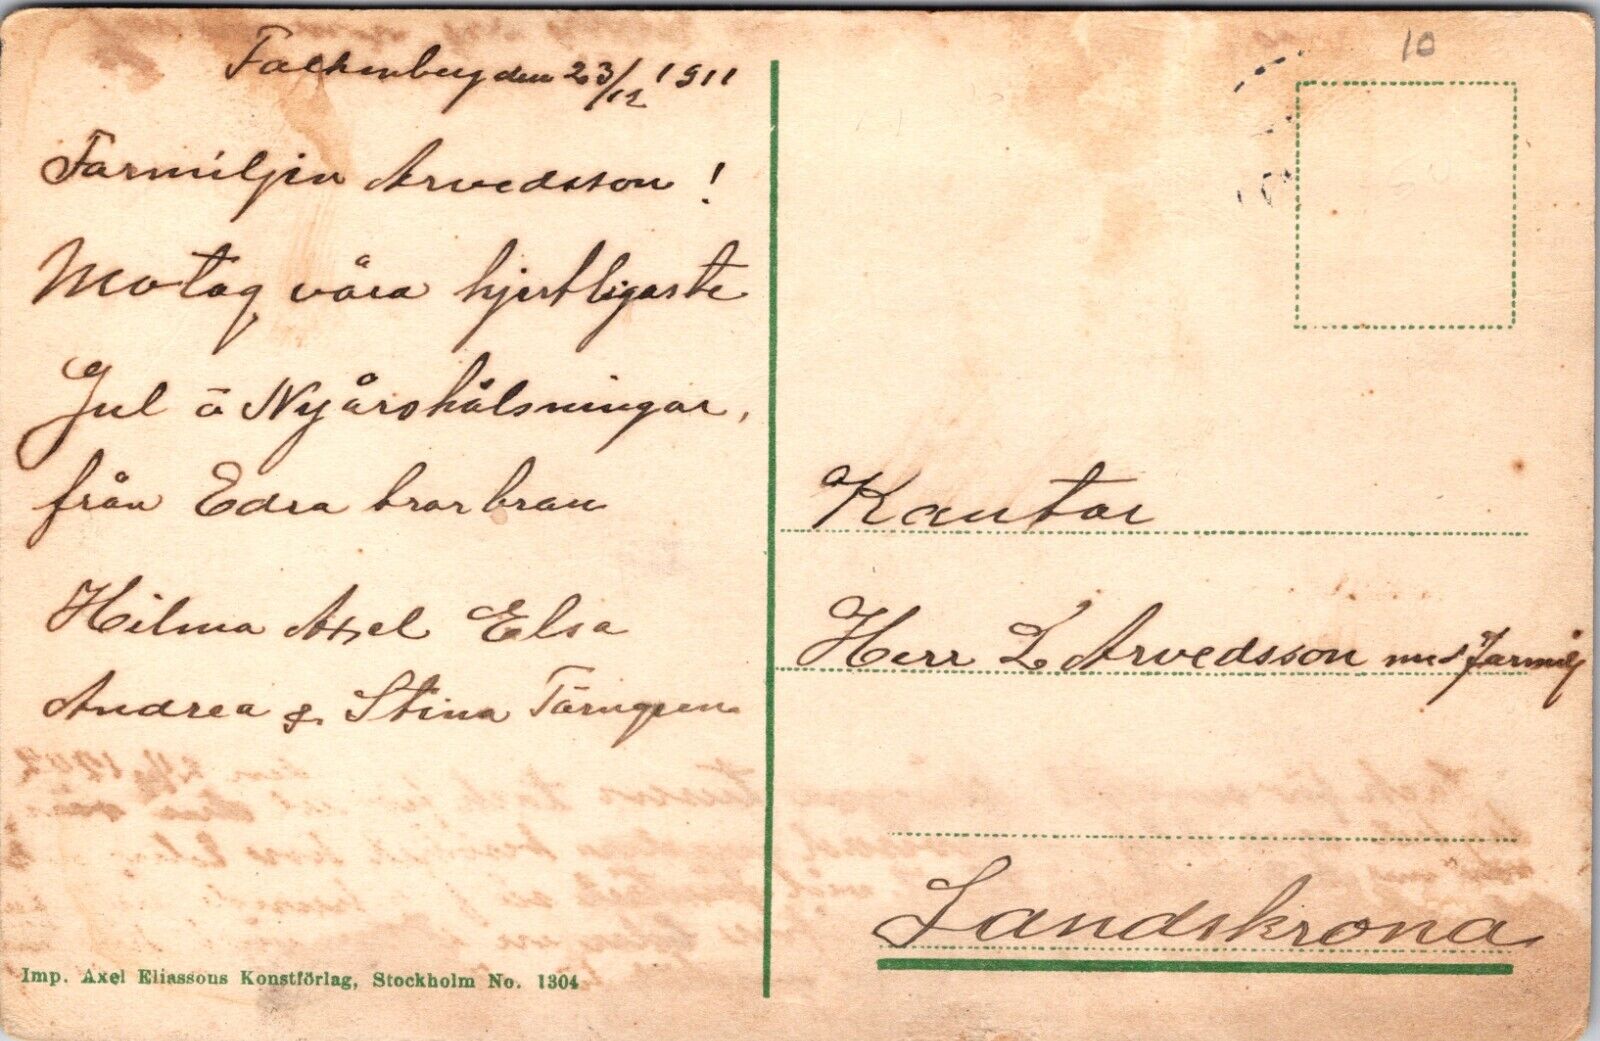 10
Falkenberg den 23/12 1911
Farmiljen Arvedsson!
Motag våra hjertligaste
Jul å Nyårshålsningar,
från Edra
Hilma Axel Elsa
Andrea & Stina Törngren
Imp. Axel Eliassons Konstförlag, Stockholm No. 1304
Kantor
Herr L Arvedsson med Farmilj
Landskrona